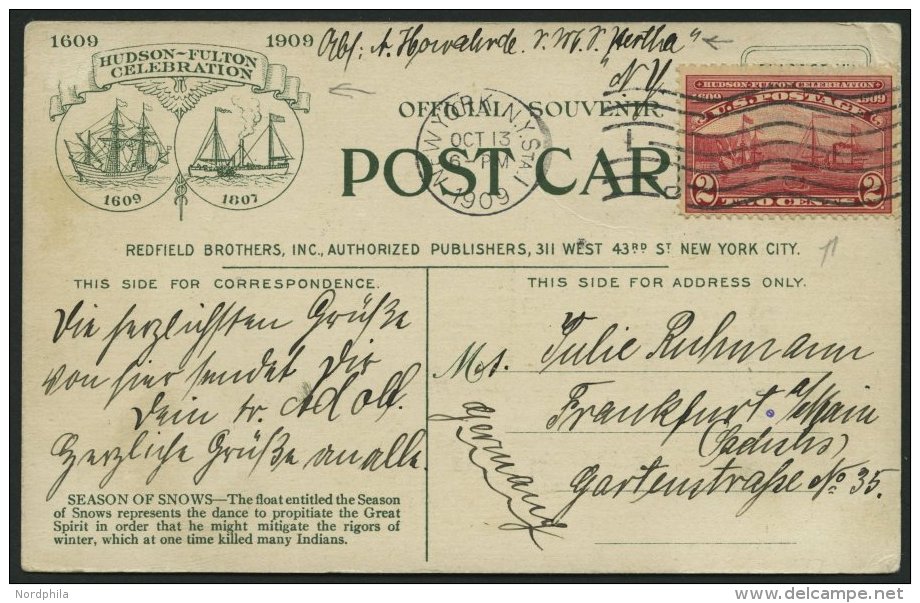 1609 1909 Abs: A. Howalerde. S.M.S. "Hertha"
HUDSON-FULTON
CELEBRATION
"N.Y."
HUDSON-FULTON CELEBRATION
1609 1909
U.S. POSTAGE
2 2
TWO CENTS
OFFICIAL SOUVENIR
NEW YORK, N.Y. STA.
OCT 13
6 PM
1909
POST CAR
1609 1807
REDFIELD BROTHERS, INC., AUTHORIZED PUBLISHERS, 311 WEST 43RD ST NEW YORK CITY.
THIS SIDE FOR CORRESPONDENCE. THIS SIDE FOR ADDRESS ONLY.
Die herzlichsten Grüße
von hier sendet Dir
Dein tr. Adolf.
Herzliche Grüße an alle.
Julie Ruhmann
Frankfurt a/Main
Gartenstraße No 35.
Germany
SEASON OF SNOWS—The float entitled the Season
of Snows represents the dance to propitiate the Great
Spirit in order that he might mitigate the rigors of
winter, which at one time killed many Indians.
Nordphila
delcampe.net